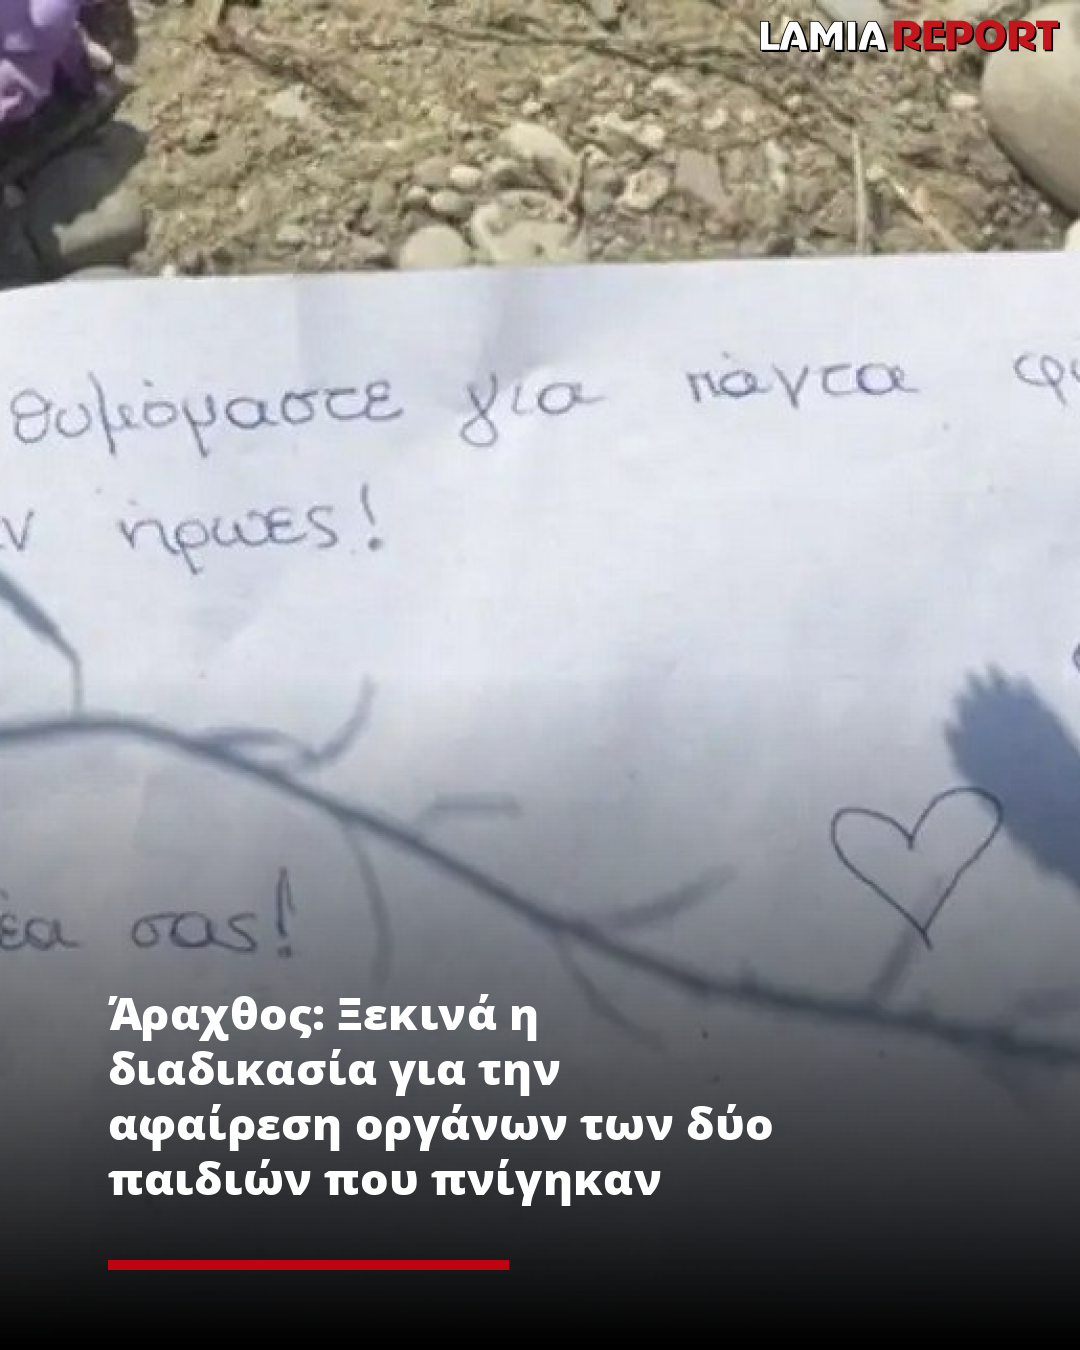 LAMIA REPORT
θυμόμαστε για πάντα
ήρωες!
σας!
Άραχθος: Ξεκινά η
διαδικασία για την
αφαίρεση οργάνων των δύο
παιδιών που πνίγηκαν